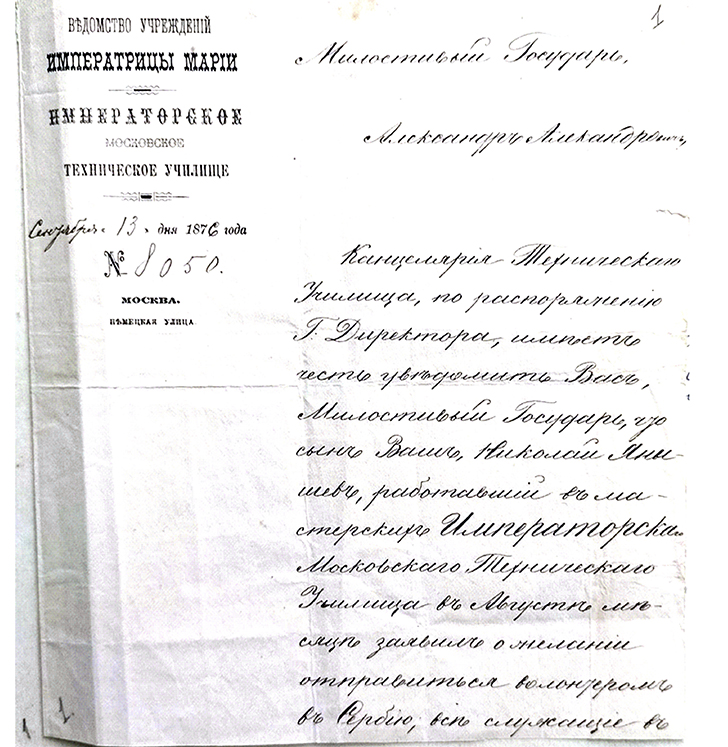 ВѢДОМСТВО УЧРЕЖДЕНІЙ
ИМПЕРАТРИЦЫ МАРІИ
ИМПЕРАТОРСКОЕ
МОСКОВСКОЕ
ТЕХНИЧЕСКОЕ УЧИЛИЩЕ
Сентября 13 дня 1876 года
№ 8050.
МОСКВА.
НѢМЕЦКАЯ УЛИЦА.
1
Милостивый Государь,
Александръ Александровичъ,
Канцелярія Техническаго
Училища, по распоряженію
Г. Директора, имѣетъ
честь увѣдомить Васъ,
Милостивый Государь, что
сынъ Вашъ, Николай Яни-
шевъ, работавшій въ ма-
стерскихъ Императорскаго
Московскаго Техническаго
Училища въ Августѣ мѣ-
сяцѣ заявилъ о желаніи
отправиться волонтеромъ
въ Сербію; всѣ служащіе въ
1
1